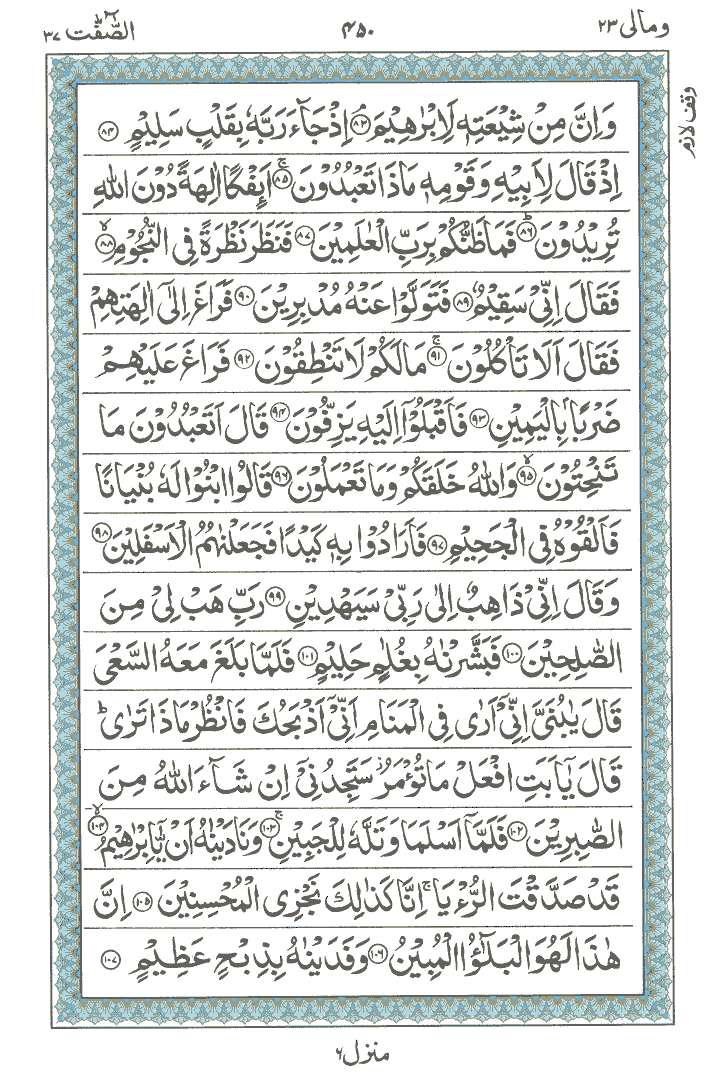 ومالی ۲۳
۴۵۰
الصّٰٓفّٰت ۳۷
وقف لازم
وَاِنَّ مِنْ شِيْعَتِهٖ لَاِبْرٰهِيْمَ ۘ﴿۸۳﴾ اِذْ جَآءَ رَبَّهٗ بِقَلْبٍ سَلِيْمٍ ﴿۸۴﴾
اِذْ قَالَ لِاَبِيْهِ وَقَوْمِهٖ مَاذَا تَعْبُدُوْنَ ۚ﴿۸۵﴾ اَئِفْكًا اٰلِهَةً دُوْنَ اللّٰهِ
تُرِيْدُوْنَ ؕ﴿۸۶﴾ فَمَا ظَنُّكُمْ بِرَبِّ الْعٰلَمِيْنَ ﴿۸۷﴾ فَنَظَرَ نَظْرَةً فِى النُّجُوْمِ ۙ﴿۸۸﴾
فَقَالَ اِنِّىْ سَقِيْمٌ ﴿۸۹﴾ فَتَوَلَّوْا عَنْهُ مُدْبِرِيْنَ ﴿۹۰﴾ فَرَاغَ اِلٰٓى اٰلِهَتِهِمْ
فَقَالَ اَلَا تَاْكُلُوْنَ ۚ﴿۹۱﴾ مَا لَكُمْ لَا تَنْطِقُوْنَ ﴿۹۲﴾ فَرَاغَ عَلَيْهِمْ
ضَرْبًاۢ بِالْيَمِيْنِ ﴿۹۳﴾ فَاَقْبَلُوْۤا اِلَيْهِ يَزِفُّوْنَ ﴿۹۴﴾ قَالَ اَتَعْبُدُوْنَ مَا
تَنْحِتُوْنَ ۙ﴿۹۵﴾ وَاللّٰهُ خَلَقَكُمْ وَمَا تَعْمَلُوْنَ ﴿۹۶﴾ قَالُوا ابْنُوْا لَهٗ بُنْيَانًا
فَاَلْقُوْهُ فِى الْجَحِيْمِ ﴿۹۷﴾ فَاَرَادُوْا بِهٖ كَيْدًا فَجَعَلْنٰهُمُ الْاَسْفَلِيْنَ ﴿۹۸﴾
وَقَالَ اِنِّىْ ذَاهِبٌ اِلٰى رَبِّىْ سَيَهْدِيْنِ ﴿۹۹﴾ رَبِّ هَبْ لِىْ مِنَ
الصّٰلِحِيْنَ ﴿۱۰۰﴾ فَبَشَّرْنٰهُ بِغُلٰمٍ حَلِيْمٍ ﴿۱۰۱﴾ فَلَمَّا بَلَغَ مَعَهُ السَّعْىَ
قَالَ يٰبُنَىَّ اِنِّىْۤ اَرٰى فِى الْمَنَامِ اَنِّىْۤ اَذْبَحُكَ فَانْظُرْ مَاذَا تَرٰى ؕ
قَالَ يٰۤاَبَتِ افْعَلْ مَا تُؤْمَرُ ؗ سَتَجِدُنِىْۤ اِنْ شَآءَ اللّٰهُ مِنَ
الصّٰبِرِيْنَ ﴿۱۰۲﴾ فَلَمَّاۤ اَسْلَمَا وَتَلَّهٗ لِلْجَبِيْنِ ۚ﴿۱۰۳﴾ وَنَادَيْنٰهُ اَنْ يّٰۤاِبْرٰهِيْمُ ۙ﴿۱۰۴﴾
قَدْ صَدَّقْتَ الرُّءْيَا ۚ اِنَّا كَذٰلِكَ نَجْزِى الْمُحْسِنِيْنَ ﴿۱۰۵﴾ اِنَّ
هٰذَا لَهُوَ الْبَلٰٓؤُا الْمُبِيْنُ ﴿۱۰۶﴾ وَفَدَيْنٰهُ بِذِبْحٍ عَظِيْمٍ ﴿۱۰۷﴾
منزل ۶